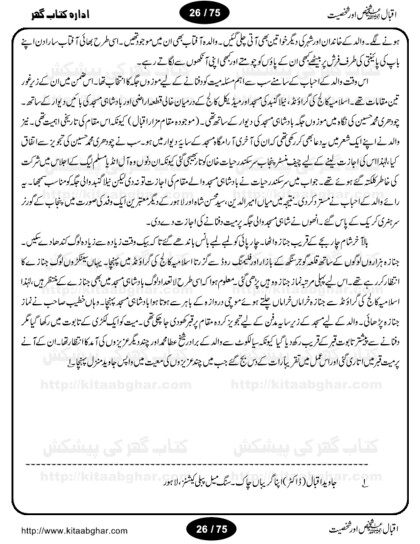 اقبال شخص اور شخصیت
26 / 75
ادارہ کتاب گھر
ہونے لگے۔ والد کے خاندان اور شہر کی دیگر خواتین بھی آتی چلی گئیں۔ والدہ آفتاب بھی ان میں موجود تھیں۔ اسی طرح بھائی آفتاب سارا دن اپنے
باپ کی پائینتی کی طرف فرش پر بیٹھے کبھی ان کے پاؤں کو چومتے اور کبھی اپنی آنکھوں سے لگاتے رہے۔
اس وقت والد کے احباب کے سامنے سب سے اہم مسئلہ میت کو دفنانے کے لیے موزوں جگہ کا انتخاب تھا۔ اس ضمن میں ان کے زیر غور
تین مقامات تھے۔ اسلامیہ کالج کی گراؤنڈ، نیلا گنبد کی مسجد اور میڈیکل کالج کے درمیان خالی قطعہ اراضی اور بادشاہی مسجد کی بائیں دیوار کے ساتھ۔
چودھری محمد حسین کی نگاہ میں موزوں جگہ بادشاہی مسجد کی دیوار کے ساتھ تھی۔ (موجودہ مقام مزار اقبال) کیونکہ اس مقام کی تاریخی اہمیت تھی۔ نیز
والد نے اپنے ایک شعر میں یہ دعا بھی کر رکھی تھی کہ ان کی آخری آرام گاہ مسجد کے سایہ دیوار میں ہو۔ سب نے چودھری محمد حسین کی تجویز سے اتفاق
کیا، لہٰذا اس کی اجازت لینے کے لیے چیف منسٹر پنجاب سر سکندر حیات خان کو تار بھیجی گئی کیونکہ ان دنوں وہ آل انڈیا مسلم لیگ کے اجلاس میں شرکت
کی خاطر کلکتہ گئے ہوئے تھے۔ جواب میں سر سکندر حیات نے بادشاہی مسجد والے مقام کی اجازت تو نہ دی لیکن نیلا گنبد والی جگہ کو مناسب سمجھا۔ یہ
رائے والد کے احباب نے مسترد کر دی۔ نتیجہ میں میاں امیر الدین، سید محسن شاہ اور لاہور کے دیگر معتبرین ایک وفد کی صورت میں پنجاب کے گورنر
سر ہنری کریک کے پاس گئے۔ انھوں نے شاہی مسجد والی جگہ پر میت دفنانے کی اجازت دے دی۔
بالآخر شام چار بجے کے قریب جنازہ اٹھا۔ چارپائی کو لمبے لمبے بانس باندھے گئے تا کہ بیک وقت زیادہ سے زیادہ لوگ کندھا دے سکیں۔
جنازہ ہزاروں لوگوں کے ساتھ قلعہ گوجر سنگھ کے بازار اور فلیمنگ روڈ سے گزرتا اسلامیہ کالج کی گراؤنڈ میں پہنچا۔ یہاں سینکڑوں لوگ جنازے کا
انتظار کر رہے تھے۔ اس لیے پہلی مرتبہ نماز جنازہ وہیں پڑھی گئی۔ معلوم ہوا کہ اسی طرح لاتعداد لوگ بادشاہی مسجد میں بھی جنازے کے منتظر ہیں، لہٰذا
اسلامیہ کالج کی گراؤنڈ سے جنازہ خراماں خراماں چلتے ہوئے موچی دروازہ کے باہر سے ہوتا ہوا بادشاہی مسجد پہنچا۔ وہاں خطیب صاحب نے نماز
جنازہ پڑھائی۔ والد کے لیے مسجد کے زیر سایہ مدفن کے لیے تجویز کردہ مقام پر قبر کھودی جا چکی تھی۔ میت کو ایک لکڑی کے تابوت میں رکھا گیا مگر
دفنانے سے پیشتر تابوت قبر کے قریب رکھ دیا گیا کیونکہ سیالکوٹ سے والد کے برادر شیخ عطا محمد اور چند دیگر عزیزوں کی آمد کا انتظار تھا۔ ان کے آنے
پر میت قبر میں اتاری گئی اور اس عمل میں تقریباً رات کے دس بج گئے جب میں چند عزیزوں کی معیت میں واپس جاوید منزل پہنچا۔
کتاب گھر کی پیشکش کتاب گھر کی پیشکش
http://kitaabghar.com http://kitaabghar.com
1 جاوید اقبال (ڈاکٹر) اپنا گریباں چاک۔ سنگ میل پبلی کیشنز، لاہور
http://www.kitaabghar.com
26 / 75
اقبال شخص اور شخصیت